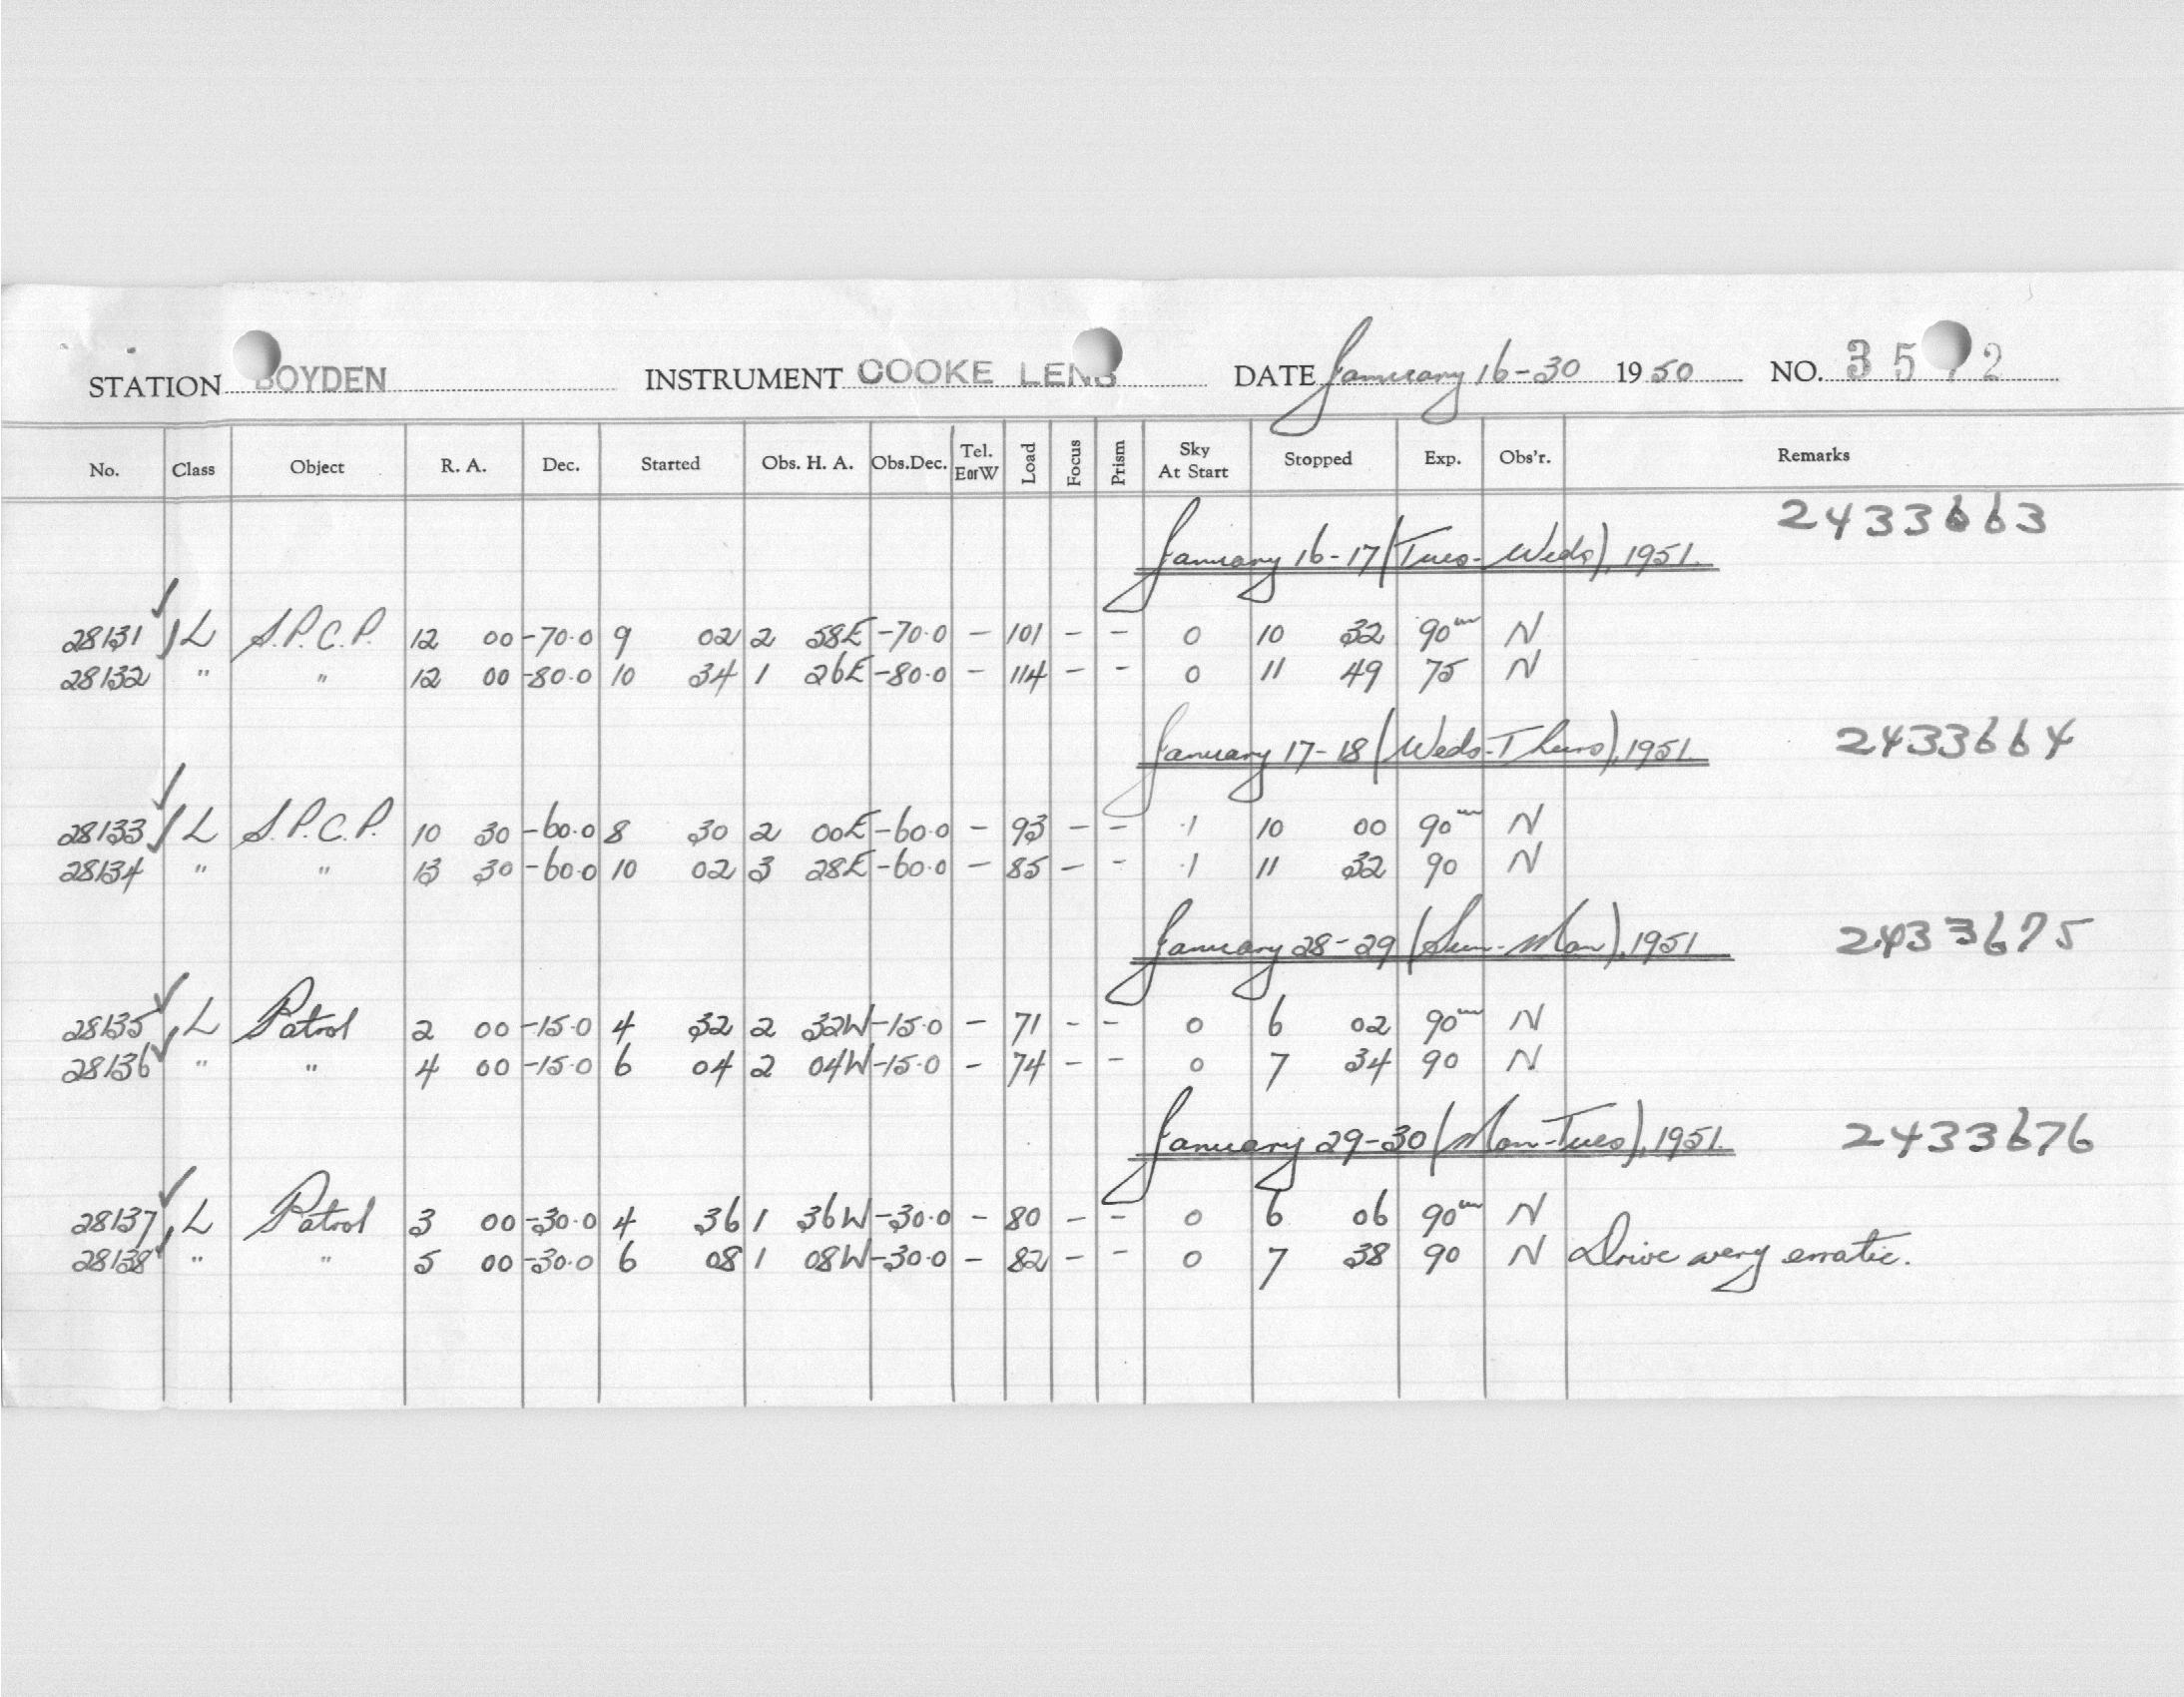 STATION BOYDEN INSTRUMENT COOKE LENS DATE January 16-30 1950 NO. 35 2
No. Class Object R. A. Dec. Started Obs. H. A. Obs.Dec. Tel. E or W Load Focus Prism Sky At Start Stopped Exp. Obs'r. Remarks
2433663
January 16-17 (Tues-Weds), 1951.
28131 L S.P.C.P. 12 00 -70.0 9 02 2 58E -70.0 - 101 - - 0 10 32 90m N
28132 " " 12 00 -80.0 10 34 1 26E -80.0 - 114 - - 0 11 49 75 N
January 17-18 (Weds-Thurs), 1951. 2433664
28133 L S.P.C.P. 10 30 -60.0 8 30 2 00E -60.0 - 93 - - .1 10 00 90m N
28134 " " 13 30 -60.0 10 02 3 28E -60.0 - 85 - - .1 11 32 90 N
January 28-29 (Sun-Mon), 1951 2433675
28135 L Patrol 2 00 -15.0 4 32 2 32W -15.0 - 71 - - 0 6 02 90m N
28136 " " 4 00 -15.0 6 04 2 04W -15.0 - 74 - - 0 7 34 90 N
January 29-30 (Mon-Tues), 1951. 2433676
28137 L Patrol 3 00 -30.0 4 36 1 36W -30.0 - 80 - - 0 6 06 90m N
28138 " " 5 00 -30.0 6 08 1 08W -30.0 - 82 - - 0 7 38 90 N Drive very erratic.